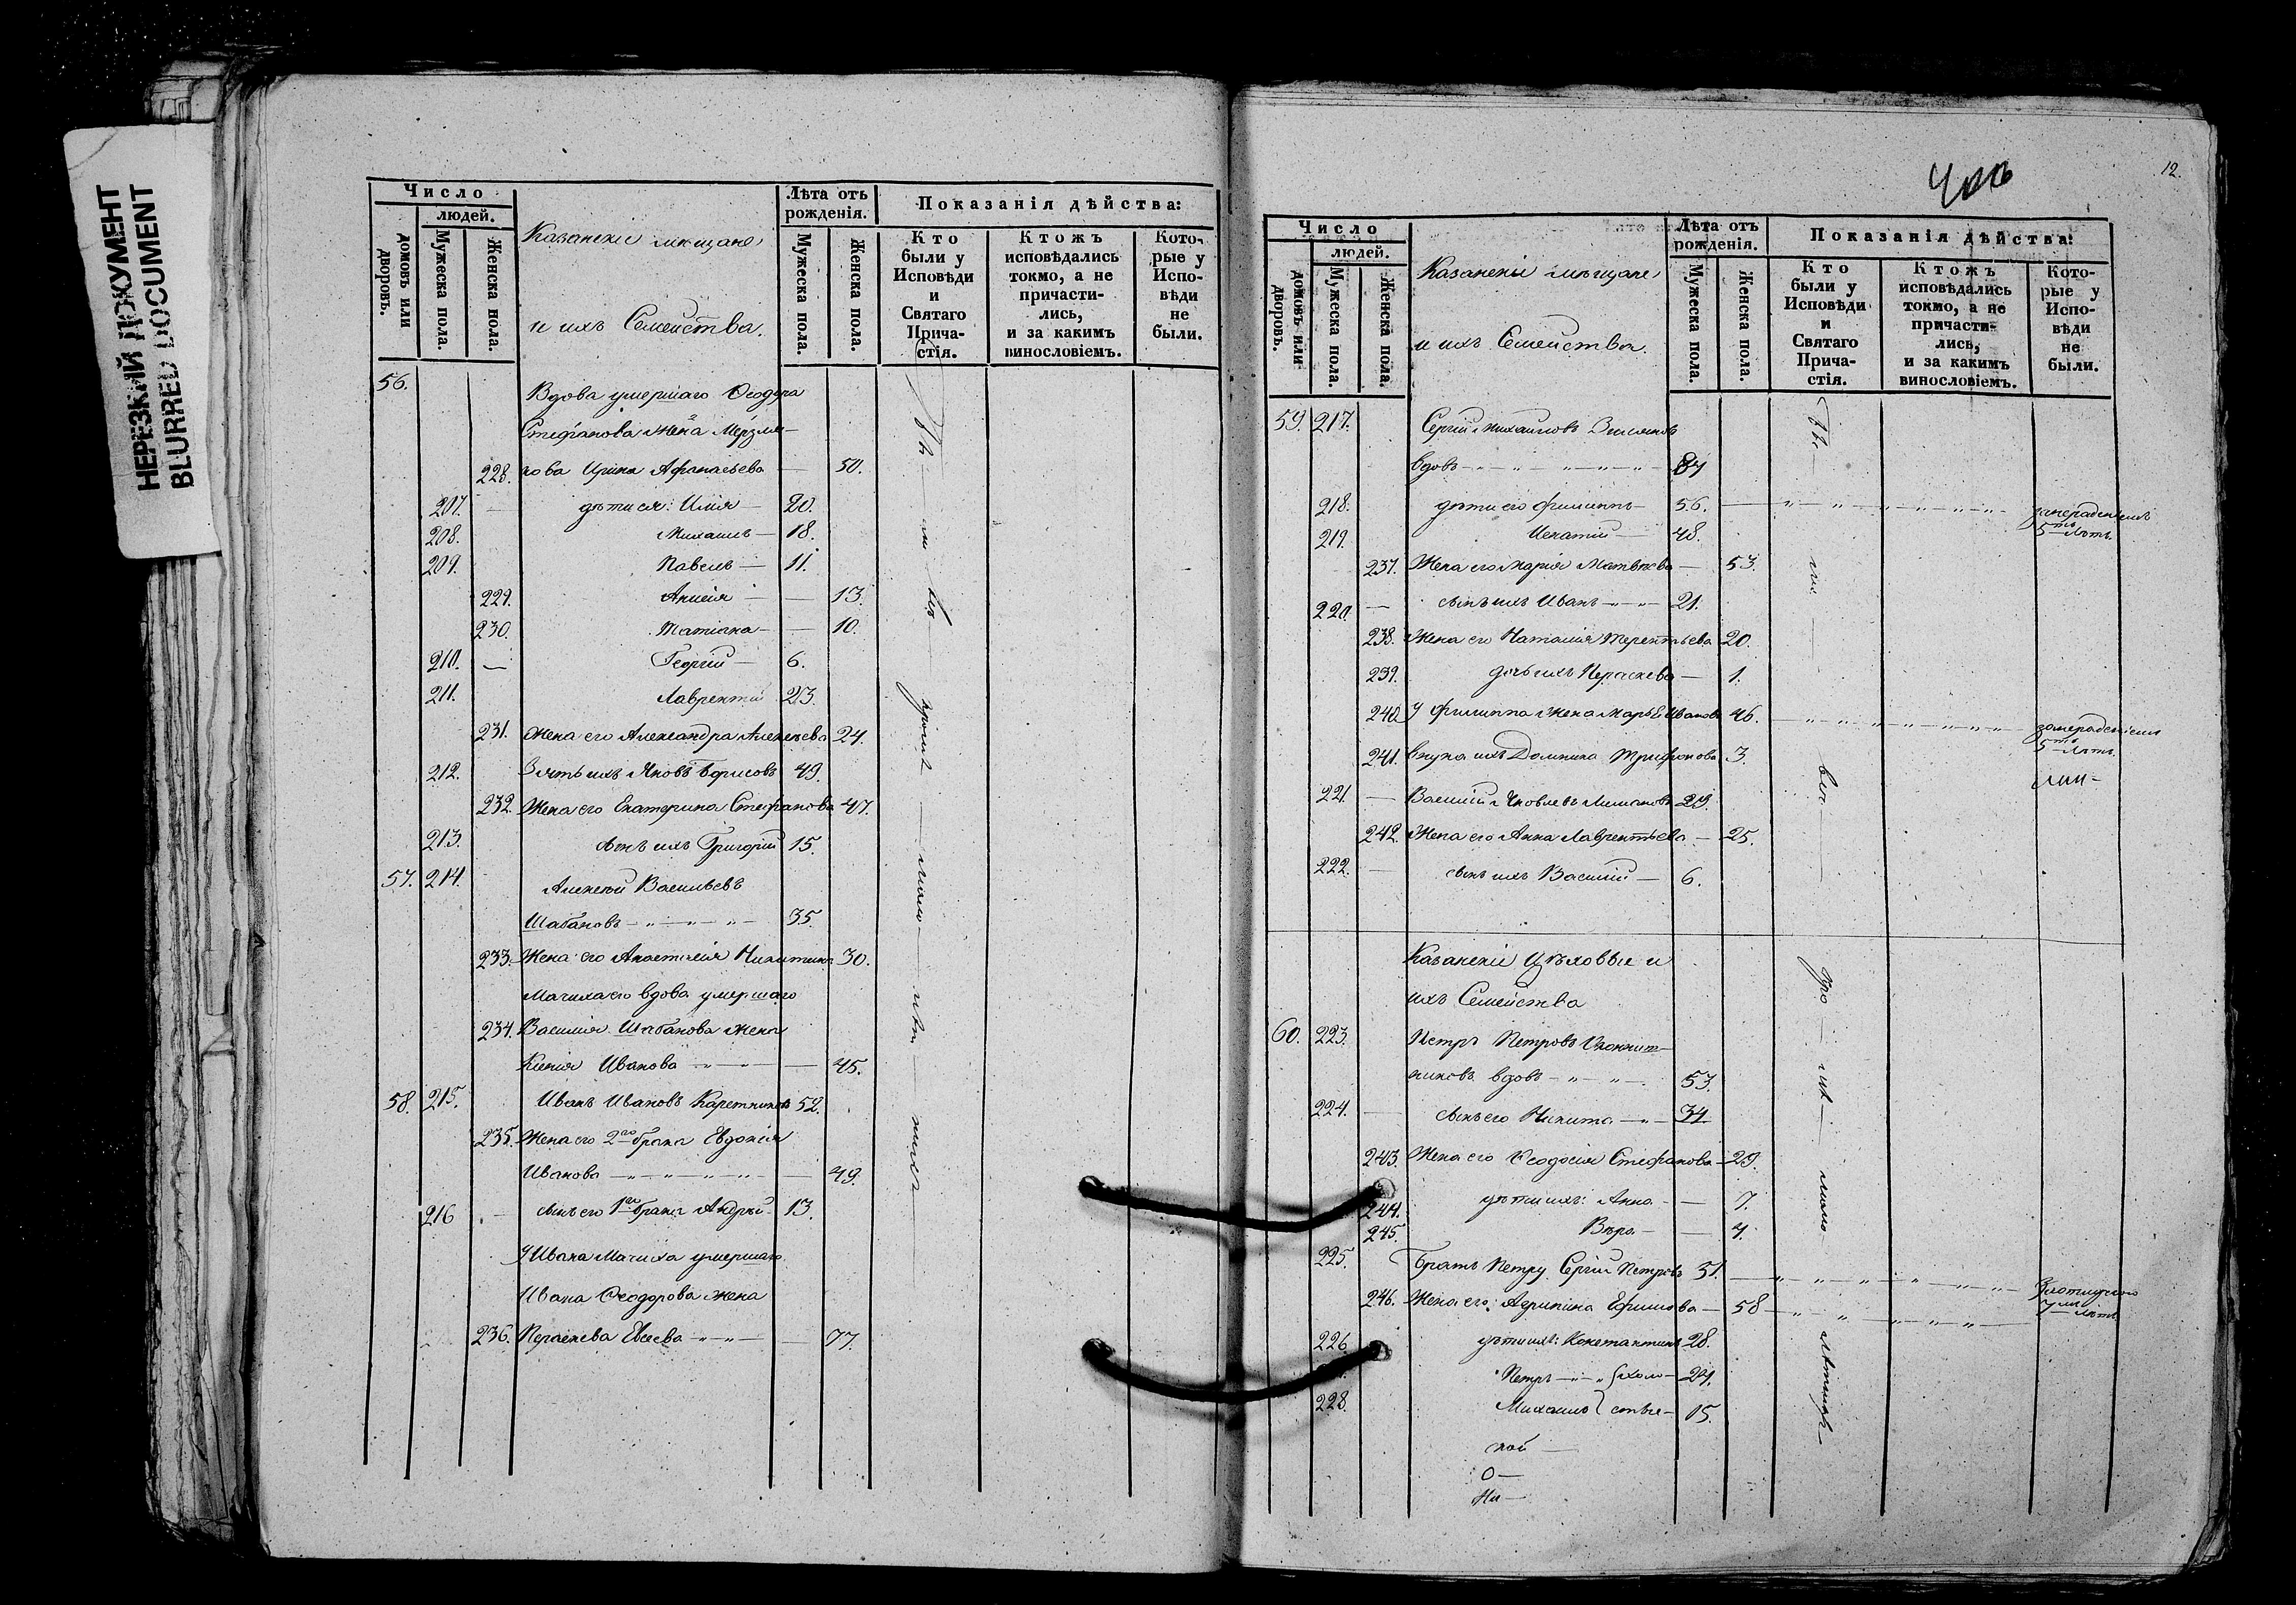 НЕРЕЗКИЙ ДОКУМЕНТ
BLURRED DOCUMENT
Число
людей.
домовъ или дворовъ.
Мужеска пола.
Женска пола.
Казанскіе мѣщане
и ихъ Семейства.
Лѣта отъ рожденія.
Мужеска пола.
Женска пола.
Показанія дѣйства:
Кто были у Исповѣди и Святаго Прича-стія.
Ктожъ исповѣдались токмо, а не причасти-лись, и за какимъ винословіемъ.
Кото-рые у Испо-вѣди не были.
56. Вдова умершаго Ѳеодора
Стефанова жена
228. Ирина Афанасьева — 50.
207. — дѣти ея: Илія — 20.
208. Михаилъ — 18.
209. Павелъ — 11.
229. Анисія — — 13.
230. Татіана — — 10.
210. — Георгій — 6.
211. Лаврентій 23.
231. Жена его Александра Алексѣева 24.
212. Зять ихъ Яковъ Борисовъ 49.
232. Жена его Екатерина Стефанова 47.
213. сынъ ихъ Григорій 15.
57. 214. Алексѣй Васильевъ
Шабановъ — „ — „ — „ — 35.
233. Жена его Анастасія Никитина 30.
Мачиха его вдова умершаго
234. Василія Шабанова жена
Ксенія Иванова — „ — „ — — 45.
58. 215. Иванъ Ивановъ Каретниковъ 52.
235. Жена его 2го брака Евдокія
Иванова — „ — „ — „ — „ — — 49.
216 — сынъ его 1го брака Андрей 13.
У Ивана Мачиха умершаго
Ивана Ѳеодорова жена
236. Параскева Евсеева — „ — „ — — 77.
12.
Число
людей.
домовъ или дворовъ.
Мужеска пола.
Женска пола.
Казанскіе мѣщане
и ихъ Семейства.
Лѣта отъ рожденія.
Мужеска пола.
Женска пола.
Показанія дѣйства:
Кто были у Исповѣди и Святаго Прича-стія.
Ктожъ исповѣдались токмо, а не причасти-лись, и за какимъ винословіемъ.
Кото-рые у Испо-вѣди не были.
59. 217. Сергій Михайловъ
вдовъ — „ — „ — „ — „ — „ —
218. дѣти его Филиппъ — 56. — „ — „ — „ — „ — „ — за нераденіемъ
5ть лѣтъ
219. Игнатій — 48.
237. Жена его Марія Матвѣева — 53.
220. — сынъ ихъ Иванъ — „ — 21.
238. Жена его Наталия Терентьева 20.
239. дочь ихъ Параскева — 1.
240. У Филиппа жена Марья Иванова 46. — „ — „ — „ — „ — „ — за нераденіемъ
5ть лѣтъ
241. внука ихъ Домника Трифонова 3.
221. — Василій Яковлевъ 29.
242. Жена его Анна Лаврентьева — 25.
222. — сынъ ихъ Василій — 6.
Казанскіе Цѣховые и
ихъ Семейства
60. 223. Петръ Петровъ
вдовъ — „ — „ — 53.
224. — сынъ его Никита — „ — 34.
243. Жена его Ѳеодосія Стефанова — 29.
244. дѣти ихъ: Анна — — 7.
245. Вѣра — — 4.
225. Братъ Петру Сергій Петровъ 51. — „ — „ — „ — „ — „ —
246. Жена его Агрипина Ефимова — 58 — „ — „ — „ — „ — „ — лѣтъ
226 дѣти ихъ: Константинъ 28.
Петръ — „ — „ холо — 24.
228. Михаилъ стые — 15.